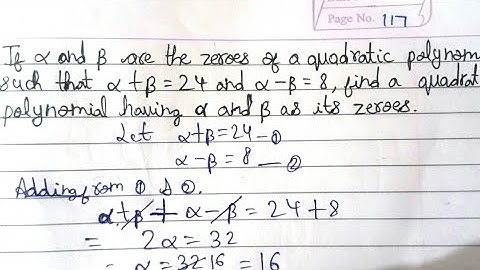 Page No. 117
If α and β are the zeroes of a quadratic polynom
such that α+β=24 and α-β=8, find a quadrat
polynomial having α and β as its zeroes.
Let α+β=24 —①
α-β=8 —②
Adding from ① & ②.
α+β+α-β=24+8
= 2α=32
= α=32 16 =16